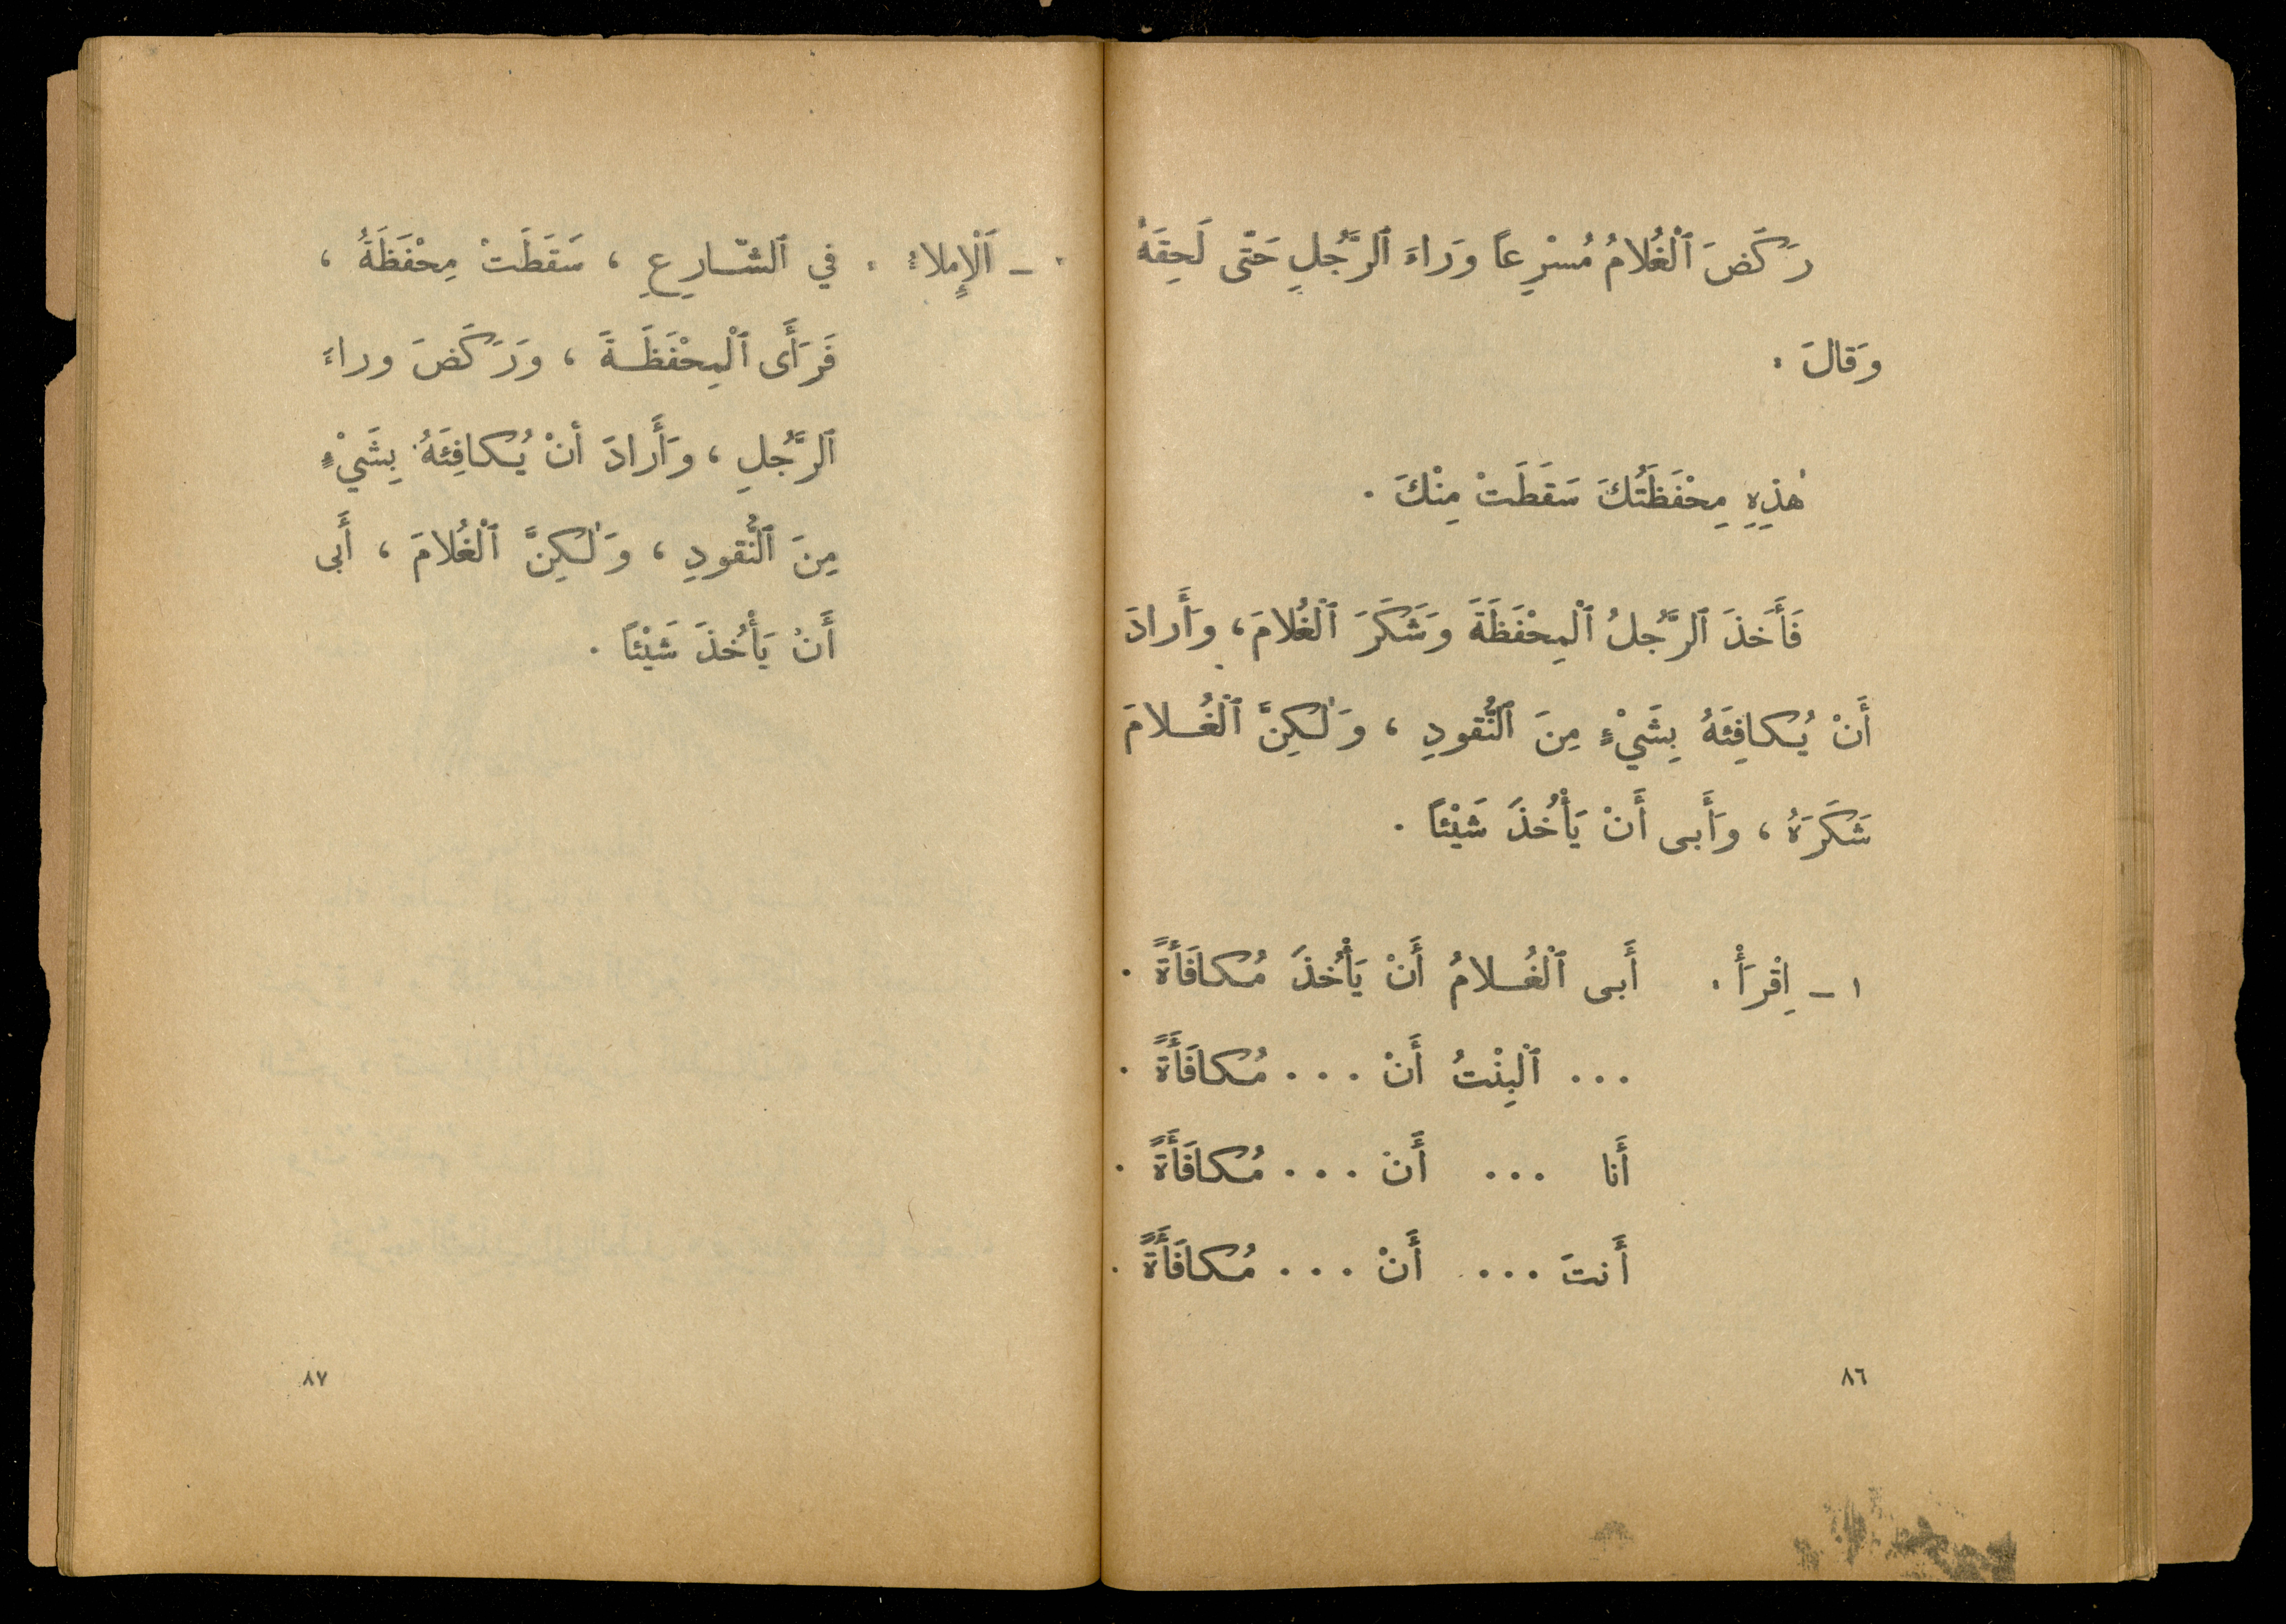 رَكَضَ ٱلْغُلامُ مُسْرِعاً وَراءَ ٱلرَّجُلِ حَتّى لَحِقَهُ
وَقالَ :
هٰذِهِ مِحْفَظَتُكَ سَقَطَتْ مِنْكَ .
فَأَخَذَ ٱلرَّجُلُ ٱلْمِحْفَظَةَ وَشَكَرَ ٱلْغُلامَ ، وَأَرادَ
أَنْ يُكافِئَهُ بِشَيْءٍ مِنَ ٱلنُّقودِ ، وَلٰكِنَّ ٱلْغُلامَ
شَكَرَهُ ، وَأَبى أَنْ يَأْخُذَ شَيْئاً .
١ – اِقْرَأْ : أَبى ٱلْغُلامُ أَنْ يَأْخُذَ مُكافَأَةً .
... ٱلْبِنْتُ أَنْ ... مُكافَأَةً .
أَنا ... أَنْ ... مُكافَأَةً .
أَنتَ ... أَنْ ... مُكافَأَةً .
٨٦
– اَلْإِملاءُ : في ٱلشّارِعِ ، سَقَطَتْ مِحْفَظَةُ ،
فَرَأَى ٱلْمِحْفَظَةَ ، وَرَكَضَ وراءَ
ٱلرَّجُلِ ، وَأَرادَ أنْ يُكافِئَهُ بِشَيْءٍ
مِنَ ٱلنُّقودِ ، وَلٰكِنَّ ٱلْغُلامَ ، أَبى
أَنْ يَأْخُذَ شَيْئاً .
٨٧